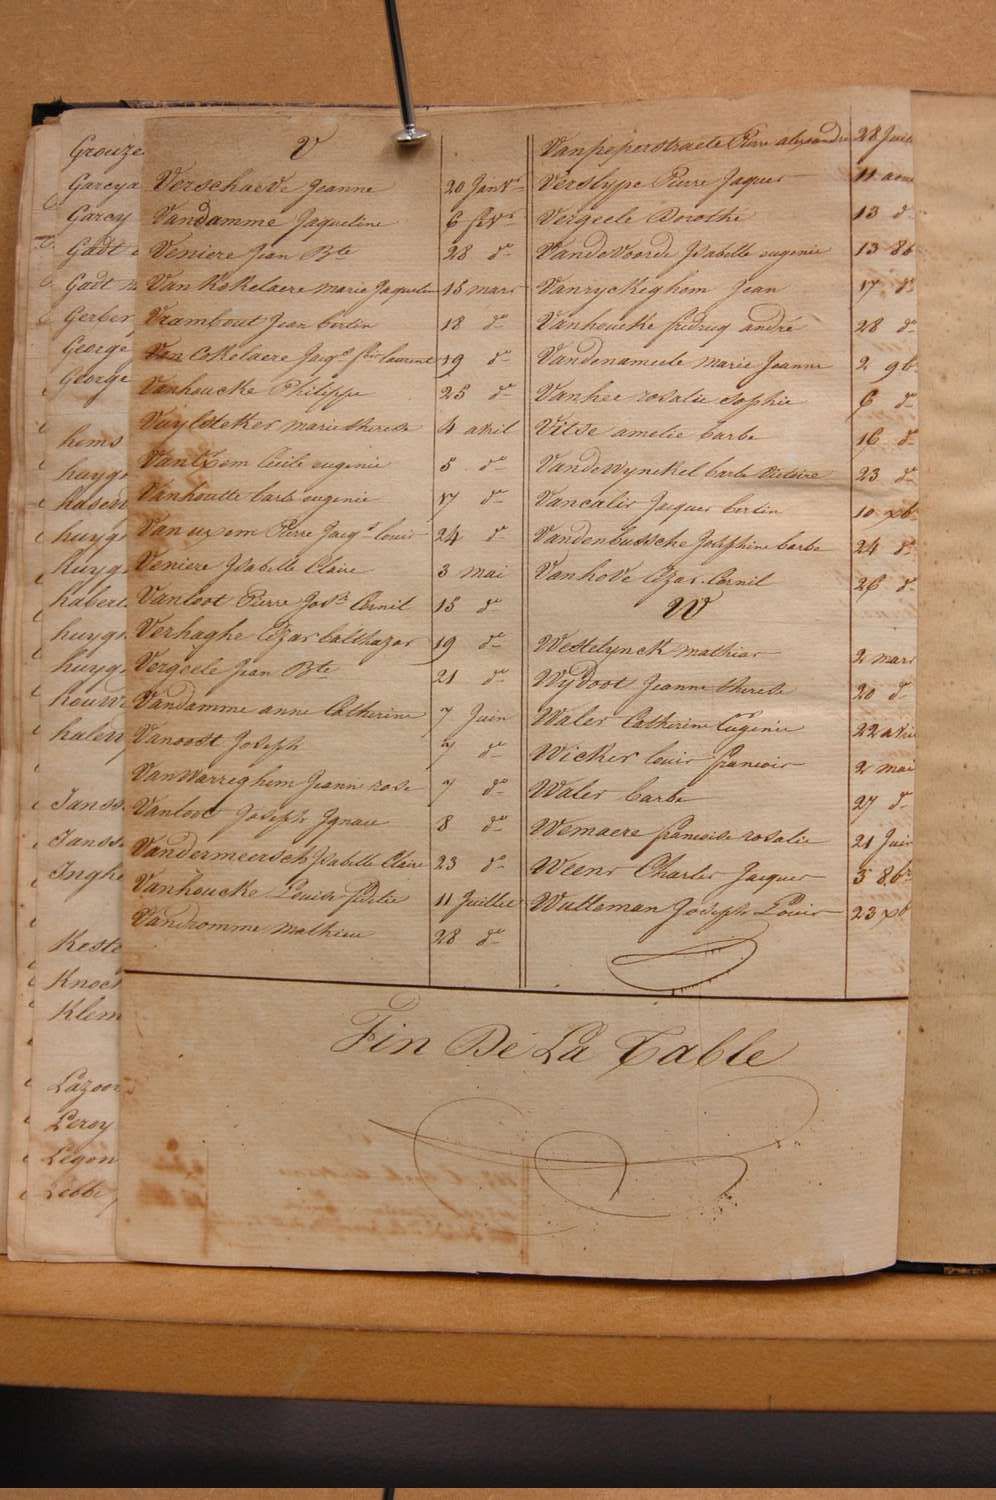 Grouze
Garcya
Garcy
Gadt
Gadt
Gerber
George
George
hems
huyg
huyg
huyg
habert
huyg
huyg
houw
halew
Janss
Janss
Inghe
Koste
Knoc
Klem
Lazoor
Leroy
Legon
Lebbe
V
Verschaeve Jeanne 20 Janvr
Vandamme Jaqueline 6 fevr
Veniere Jean Bte 28 do
Van Kokelaere marie Jaqueline 15 mars
Vrambout Jean bertin 18 do
Van Cokelaere Jaqs laurent 19 do
Vanhoucke Philippe 25 do
Vuylsteker marie therese 4 avril
Cecile eugenie 5 do
Vanhoutte barbe eugenie 17 do
Van uxem Pierre Jacqs louis 24 do
Veniere Isabelle Claire 3 mai
Vanloot Pierre Josh Cornil 15 do
Verhaghe Cézar balthazar 19 do
Vergeele Jean Bte 21 do
Vandamme anne Catherine 7 Juin
Vanoost Joseph 7 do
Vanwarreghem Jeanne rose 7 do
Vanloot Joseph Ignace 8 do
Vandermeersch Isabelle Claire 23 do
Vanhoucke Louise fidelie 11 Juillet
Vandromme mathieu 28 do
Vanpeperstraete Pierre alexandre 28 Juil
Verslype Pierre Jaques 11 aout
Vergeele Dorothé 13 do
Vandevoorde Isabelle eugenie 13 8b
Vanryckeghem Jean 17 do
Vanhoucke andré 28 do
Vandenameele Marie Jeanne 2 9b
Vanhee rosalie Sophie 6 do
Vitse amelie barbe 16 do
Vandewynckel barbe Victoire 23 do
Vancalis Jacques bertin 10 xb
Vandenbussche Josephine barbe 24 do
Vanhove Cézar Cornil 26 do
W
Westelynck mathias 2 mars
Wydoot Jeanne therese 20 do
Wales Catherine Eugénie 22 avril
Wicker louis francois 2 mai
Wales barbe 27 do
Wemaere francoise rosalie 21 Juin
Weens Charles Jacques 5 8br
Wulleman Joseph Louis 23 xb
Fin De La Table